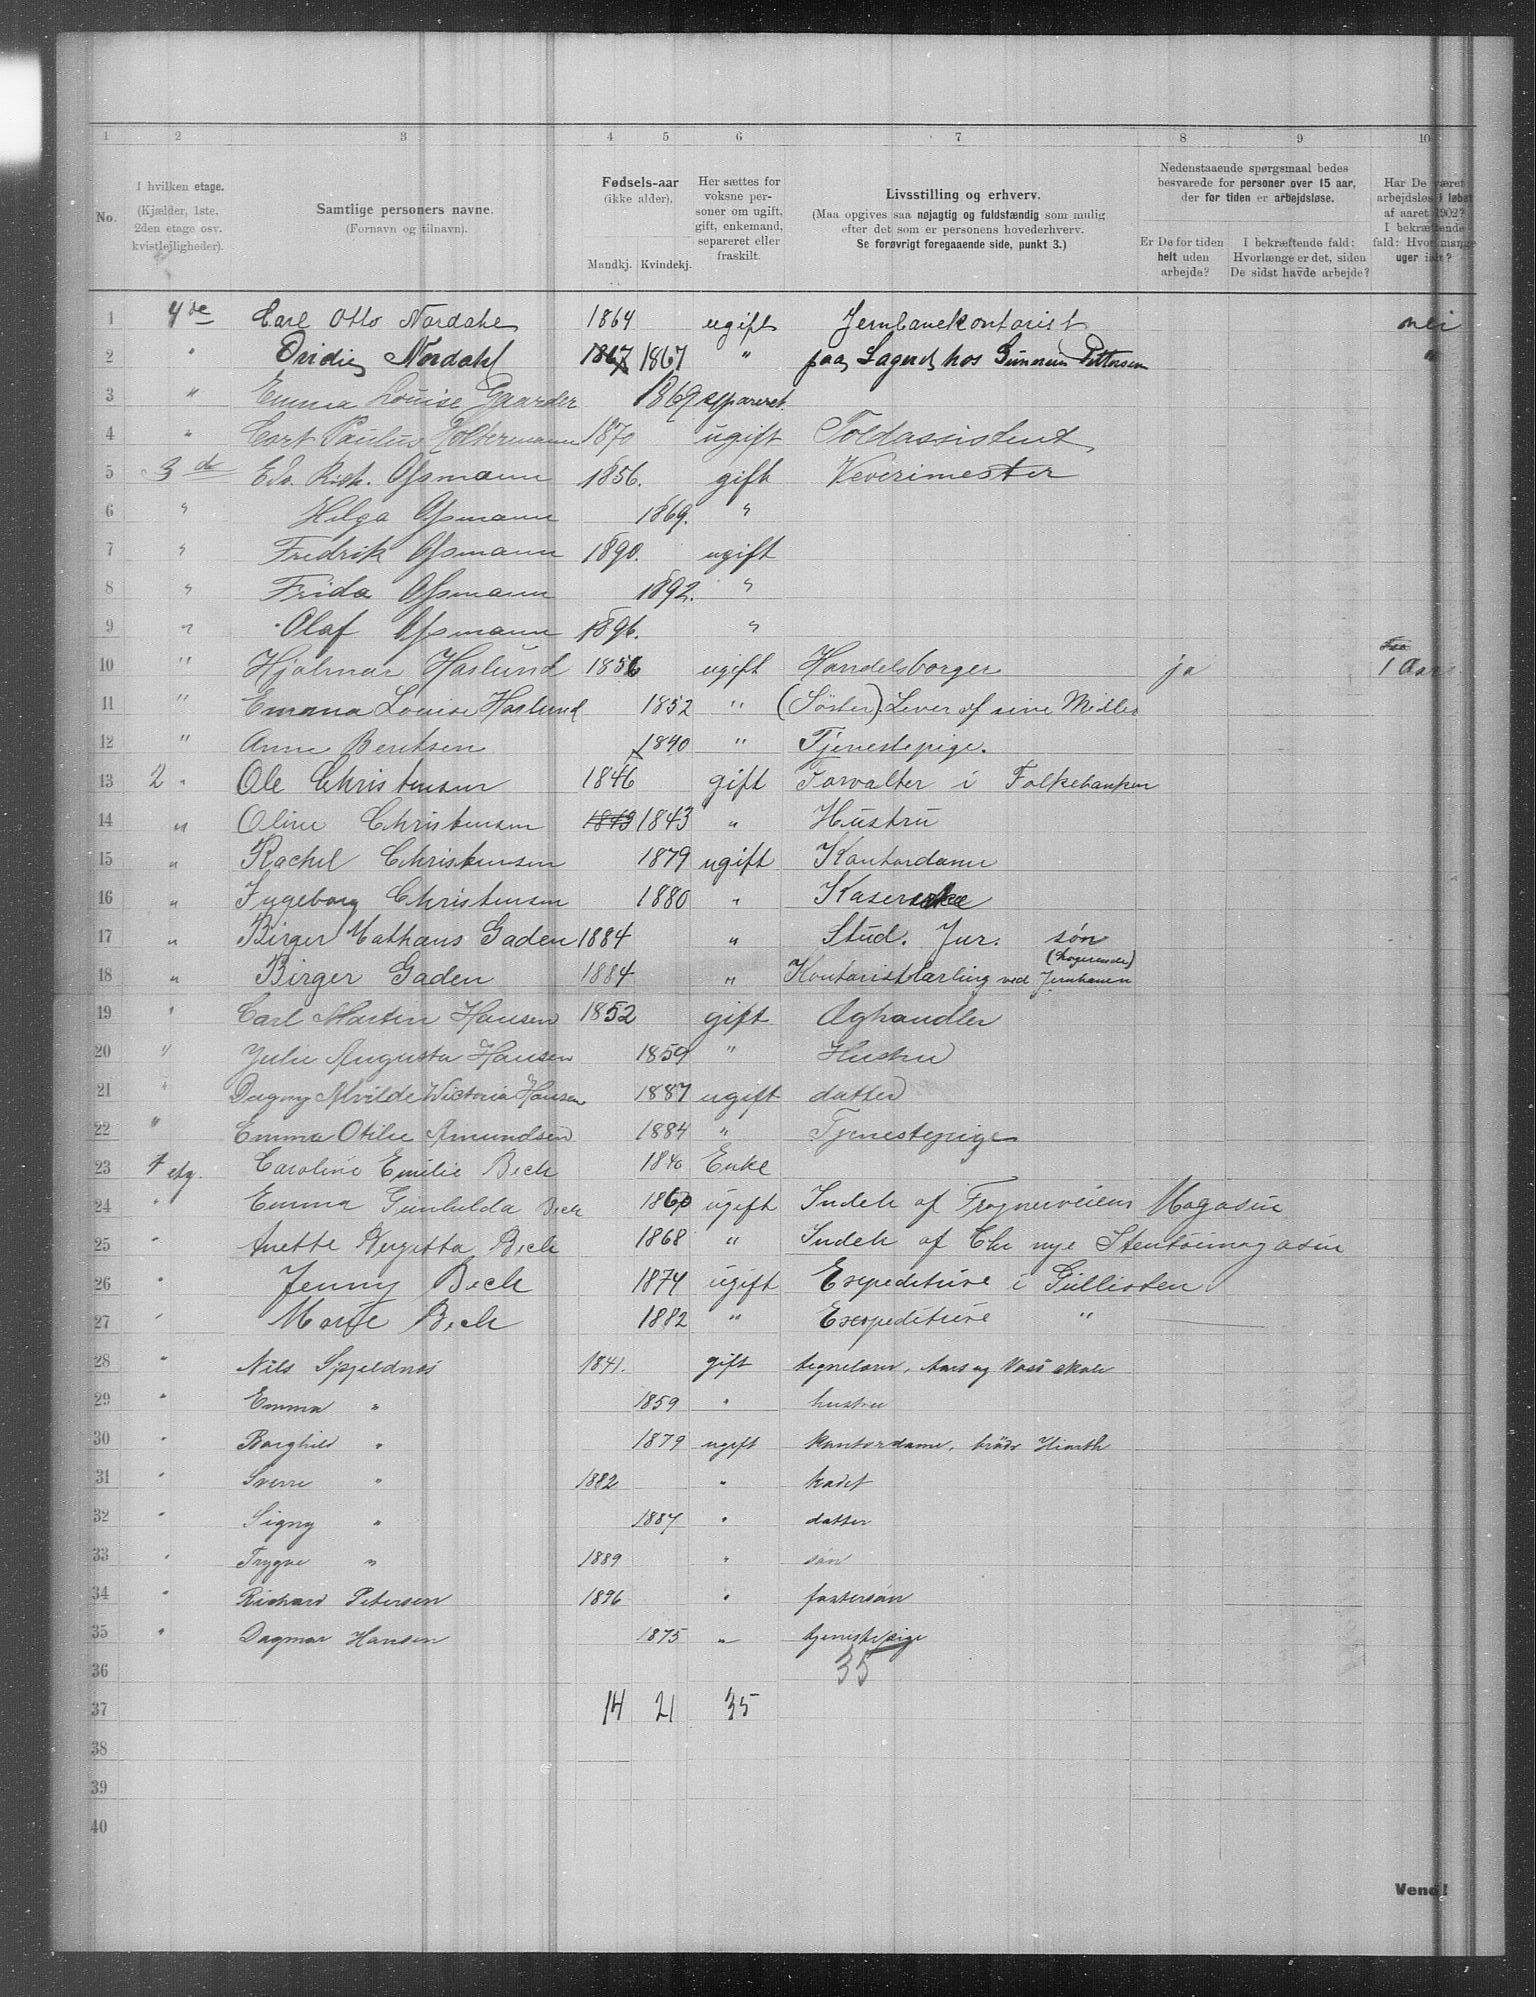 1 2 3 4 5 6 7 8 9 10
No.
I hvilken etage.
(Kjælder, 1ste. 2den etage osv. kvistlejligheder).
Samtlige personers navne.
(Fornavn og tilnavn).
Fødsels-aar
(ikke alder).
Mandkj. Kvindekj.
Her sættes for voksne personer om ugift, gift, enkemand, separeret eller fraskilt.
Livsstilling og erhverv.
(Maa opgives saa nøjagtig og fuldstændig som mulig
efter det som er personens hovederhverv.
Se forøvrigt foregaaende side, punkt 3.)
Nedenstaaende spørgsmaal bedes
besvarede for personer over 15 aar,
der for tiden er arbejdsløse.
Er De for tiden helt uden arbejde?
I bekræftende fald: Hvorlænge er det, siden De sidst havde arbejde?
Har De været arbejdsløs i løbet af aaret 1902? I bekræftende fald: Hvor mange uger ialt?
1 4de Carl Otto Nordahl 1864 ugift Jernbanekontorist nei
2 " Nordahl 1867 1867 " paa Lager hos Gunerius Pettersen "
3 " Emma Louise Gaarder 1869 separeret
4 " Cort Paulus Holtermann 1870 ugift Toldassistent
5 3de Edv. Rich. Ossmann 1856. gift Væverimester
6 " Helga Ossmann 1869. "
7 " Fredrik Ossmann 1890. ugift
8 " Frida Ossmann 1892. "
9 " Olaf Ossmann 1896. "
10 " Hjalmar Haslund 1856 ugift Handelsborger ja 1 Aar
11 " Emma Louise Haslund 1852 " (Søster) Lever af sine Midler
12 " Anne Berntsen 1840 " Tjenestepige.
13 2 " Ole Christensen 1846 gift Forvalter i Folkebanken
14 " Oline Christensen 1843 1843 " Hustru
15 " Rachel Christensen 1879 ugift Kontordame
16 " Ingeborg Christensen 1880 "
17 " Birger Mathæus Gaden 1884 " Stud. Jur. søn
(Logerende)
18 " Birger Gaden 1884 " Kontoristlærling ved Jernbanen
19 " Carl Martin Hansen 1852 gift Æghandler
20 " Julie Augusta Hansen 1859 " Hustru
21 " Dagny Alvilde Wictoria Hansen 1887 ugift datter
22 " Emma Otilie Amundsen 1884 " Tjenestepige
23 1 etg. Caroline Emilie Bech 1840 Enke
24 " Emma Gunhilda Bech 1860 ugift Indeh af Frognerveiens Magasin
25 " Anette Bergitta Bech 1868 " Indeh af Chr nye Stentøimagasin
26 " Jenny Bech 1874 ugift Expeditrise i
27 " Marie Bech 1882 " Expeditrise "
28 " Nils Spjeldnæs 1841. gift tegnelærer, Aars og Voss skole
29 " Emma " 1859 " hustru
30 " Borghild " 1879 ugift kontordame, brødr Hiorth
31 " Sverre " 1882 " kadet
32 " Signy " 1887 " datter
33 " Trygve " 1889 " søn
34 " Richard Petersen 1896 " fostersøn
35 " Dagmar Hansen 1875 " tjenestepige
36 35
37 14 21 35
38
39
40
Vend!